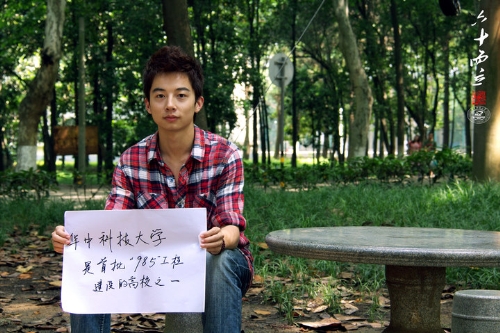 华中科技大学
是首批"985"工程
建设的高校之一
六十而立